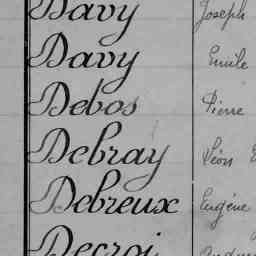 Davy Joseph
Davy Emile
Debos Pierre
Debray Léon
Debreux Eugène
Decroi